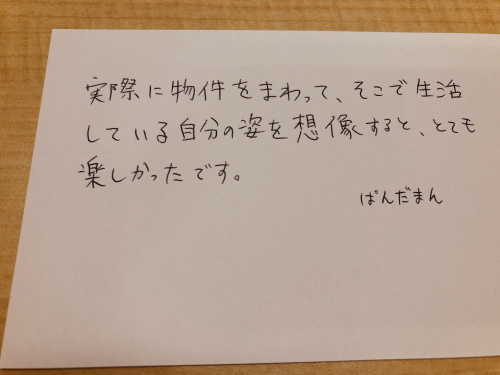 実際に物件をまわって、そこで生活
している自分の姿を想像すると、とても
楽しかったです。
ぱんだまん